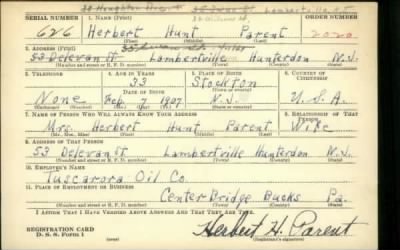 SERIAL NUMBER 1. NAME (Print) ORDER NUMBER
626 Herbert Hunt Parent 2020
(First) (Middle) (Last)
2. ADDRESS (Print)
53 Delevan St Lambertville Hunterdon N.J.
(Number and street or R. F. D. number) (Town) (County) (State)
3. TELEPHONE 4. AGE IN YEARS 5. PLACE OF BIRTH 6. COUNTRY OF CITIZENSHIP
33 Stockton
DATE OF BIRTH
None Feb 7 1907 N.J. U.S.A.
(Exchange) (Number) (Mo.) (Day) (Yr.) (State or country)
7. NAME OF PERSON WHO WILL ALWAYS KNOW YOUR ADDRESS 8. RELATIONSHIP OF THAT PERSON
Mrs. Herbert Hunt Parent Wife
(Mr., Mrs., Miss) (First) (Middle) (Last)
9. ADDRESS OF THAT PERSON
53 Delevan St Lambertville Hunterdon N.J.
(Number and street or R. F. D. number) (Town) (County) (State)
10. EMPLOYER'S NAME
Tuscarora Oil Co.
11. PLACE OF EMPLOYMENT OR BUSINESS
Center Bridge Bucks Pa.
(Number and street or R. F. D. number) (Town) (County) (State)
I AFFIRM THAT I HAVE VERIFIED ABOVE ANSWERS AND THAT THEY ARE TRUE.
REGISTRATION CARD
D. S. S. Form 1 Herbert H. Parent
(Registrant's signature)